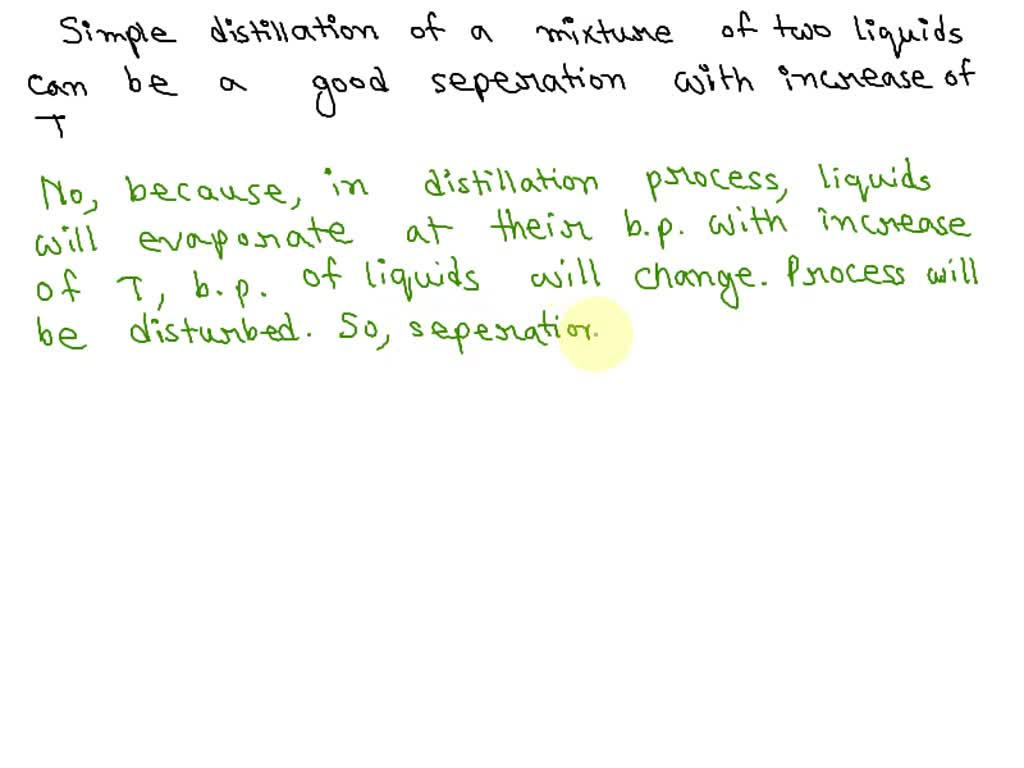 Simple distillation of a mixture of two liquids
can be a good seperation with increase of
T
No, because, in distillation process, liquids
will evaporate at their b.p. with increase
of T, b.p. of liquids will change. Process will
be disturbed. So, seperation.